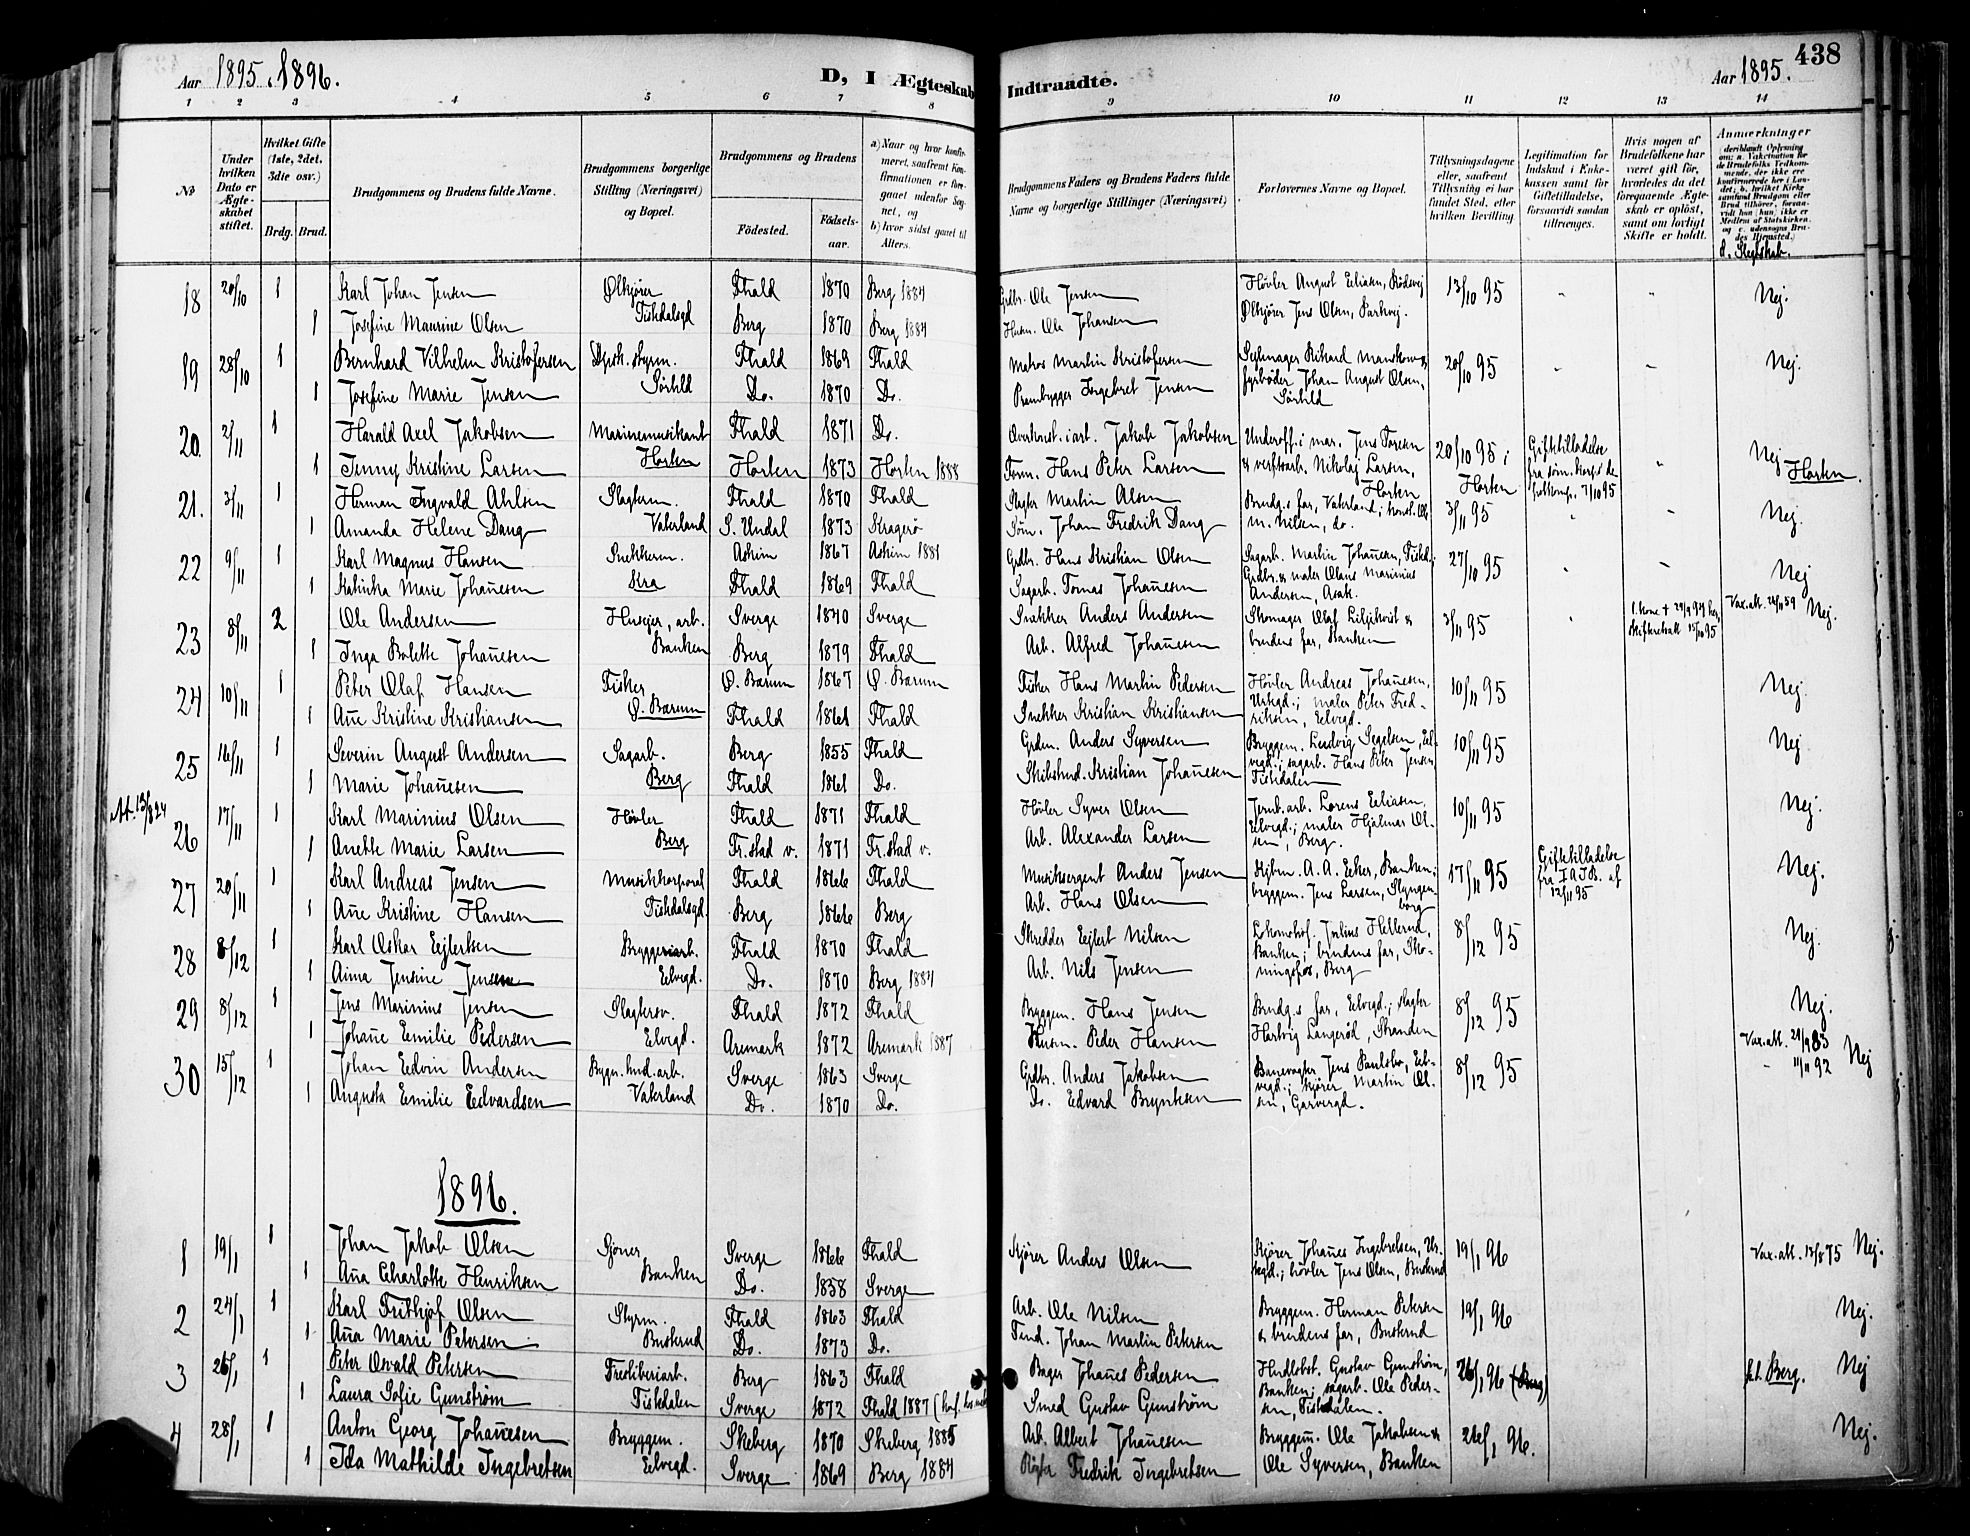 Aar 1895. 1896.
D, I Ægteskab
1 2 3 4 5 6 7 8
№
Under hvilken Dato er Ægteskabet stiftet.
Hvilket Gifte (1ste, 2det, 3die osv.)
Brdg. Brud.
Brudgommens og Brudens fulde Navne.
Brudgommens borgerlige Stilling (Næringsvei) og Bopæl.
Brudgommens og Brudens
Fødested. Fødselsaar.
18 20/10 1 Karl Johan Jensen Ølkjører Fhald 1870 Berg 1884
Tistedalsgd
1 Josefine Maurine Olsen Berg 1870 Berg 1884
19 28/10 1 Bernhard Vilhelm Kristofersen Dpsk. styrm. Fhald 1869 Fhald
Sørhld
1 Josefine Marie Jensen Do. 1870 Do.
20. 2/11 1 Harald Axel Jakobsen Marinemusikant Fhald 1871 Do.
Horten
1 Jenny Kristine Larsen Horten 1873 Horten 1888
21. 3/11 1 Herman Ingvald Ahlsen Slagterm. Fhald 1870 Fhald
1 Amanda Helene Dang Vaterland S. Undal 1873 Kragerø
22 9/11 1 Karl Magnus Hansen Snekkerm. Askim 1867 Askim 1881
Kra
1 Katinka Marie Johanesen Fhald 1869 Fhald
23 8/11 2 Ole Andersen Huseier, arb. Sverge 1840 Sverge
Banken
1 Inga Bolette Johanesen Berg 1879 Fhald
24 10/11 1 Peter Olaf Hansen Fisker Ø. Barum 1867 Ø. Barum
Ø. Barum
1 Ane Kristine Kristiansen Fhald 1861 Fhald
25 16/11 1 Severin August Andersen Sagarb. Berg 1855 Fhald
Berg
1 Marie Johanesen Fhald 1861 Do.
At. 13/8 24
26 17/11 1 Karl Marinius Olsen Høvler Fhald 1871 Fhald
Berg
1 Anette Marie Larsen Fr.stad v. 1871 Fr.stad v.
27 20/11 1 Karl Andreas Jensen Musikkorporal Fhald 1866 Fhald
Tistedalsgd.
1 Ane Kristine Hansen Berg 1866 Berg
28 8/12 1 Karl Oskar Eejlertsen Bryggeriarb. Fhald 1870 Fhald
Eelvegd.
1 Aima Jensine Jensen Do. 1870 Berg 1884
29 8/12 1 Jens Marinius Jensen Slagtersv. Fhald 1872 Fhald
Eelvegd.
1 Johane Eemilie Pedersen Aremark 1872 Aremark 1887
30 15/12 1 Johan Eedvin Andersen Bygn.hnd.arb. Sverge 1863 Sverge
1 Augusta Eemilie Eedvardsen Vaterland Do. 1870 Do.
1896.
1 19/1 1 Johan Jakob Olsen Gjøner Sverge 1866 Fhald
Banken
1 Ana Charlotte Henriksen Do. 1858 Sverge
2 24/1 1 Karl Fridthjof Olsen Styrm. Fhald 1863 Fhald
Busterud
1 Ana Marie Petersen Do. 1873 Do.
3 26/1 1 Peter Osvald Petersen Træsliberiarb. Berg 1863 Fhald
Tistedalen
1 Laura Sofie Gunstrøm Sverge 1872 Fhald 1887
4 28/1 1 Anton Georg Johanesen Bryggem. Skeberg 1870 Skeberg 1885
Eelvegd.
1 Ida Mathilde Ingebretsen Sverge 1869 Berg 1884
Indtraadte.
Aar 1895.
438
9 10 11 12 13 14
Brudgommens Faders og Brudens Faders fulde Navne og borgerlige Stillinger (Næringsvei)
Forlovernes Navne og Bopæl.
Tillysningsdagene eller, saafremt Tillysning ei har fundet Sted, efter hvilken Bevilling.
Legitimation for Indskud i Enkekassen samt for Giftetilladelse, forsaavidt saadan tiltrænges.
Hvis nogen af Brudefolkene har været gift før, hvorledes da det foregaaende Ægteskab er opløst, samt om lovligt Skifte er holdt.
Anmerkninger
d. Slegtskab.
Grdbr. Ole Jensen Høvler August Eeliasen, Rødsvej 13/10 95 Nej.
Husm. Ole Johansen Ølkjører Jens Olsen, Parkvej.
Matros Martin Kristofersen Sejlmager Rikard 20/10 95 Nej.
Prambygger Ingebret Jensen fyrbøder Johan August Olsen,
Sørhld
Jakob Jakobsen Underoff. i mar. Jens Toresen 20/10 95 i Giftetilladelse Nej
Ferm. Hans Peter Larsen & verftsarb. Nikolaj Larsen, Horten Horten
Horten 7/10 95
Slagter Martin Alsen Brudg.s far, Vaterland; 3/11 95 Nej.
Søm. Johan Fredrik Dang m. Nilsen, do.
Grdbr. Hans Kristian Olsen Sagarb. Martin Johanesen, Tistd.; 27/10 95 Nej
Sagarb. Tomas Johanesen Grdbr. & maler Olaus Marinius
Andersen, Asak.
Snekker Anders Andersen Skomager Olaf Liljekvist & 3/11 95 Vax.att. 24/11 59 Nej.
Arb. Alfred Johanesen brudens far, Banken
Fisker Hans Martin Pedersen Høvler Andreas Johanesen, 10/11 95 Nej.
Snekker Kristian Kristiansen maler Peter Fredriksen, Eelvegd.
Grdm. Anders Syversen Bryggem. Ludvig Segelsen, Eelvegd.; sagarb. Hans Peter Jensen 10/11 95 Nej
Kristian Johanesen Tistedalen
Høvler Syver Olsen Jernb.arb. Lorens Eeliasen, 10/11 95 Nej.
Arb. Alexander Larsen Eelvegd.; maler Hjalmar Olsen, Berg.
Musiksergent Anders Jensen Kjbm. A. A. Eeker, Banken; 17/11 95 Giftetilladelse fra I.A.J.B. af 12/11 95 Nej.
Arb. Hans Olsen bryggem. Jens Larsen,
Skredder Eejlert Nilsen Lokomotivf. Julius Hellerud, 8/12 95 Nej.
Arb. Nils Jensen Banken; brudens far, Skoningsfos, Berg
Bryggem. Hans Jensen Brudg.s far, Eelvegd.; slagter 8/12 95 Nej.
Husm. Peder Hansen Hartvig Langerød, Stranden
Grdbr. Anders Jakobsen Banevogter Jens Paulsbo, Eelvegd.; kjører Martin Olsen, Garvergd. 8/12 95 Vax.att. 21/9 83 Nej
Do. Edvard Bryntesen 11/11 92
Kjører Anders Olsen Kjører Johanes Ingebretsen, 19/1 96 Vax.att. 13/8 75 Nej.
høvler Jens Olsen, Busterud
Arb. Ole Nilsen Bryggem. Herman Petersen 19/1 96 Nej.
Johan Martin Petersen & brudens far, Busterud
Bager Johanes Pedersen Gustav Gunstrøm, 26/1 96 (Berg) Berg. Nej
Smed Gustav Gunstrøm Banken; sagarb. Ole Pedersen, Tistedalen.
Arb. Albert Johanesen Bryggem. Ole Jakobsen & 26/1 96. Nej.
Fredrik Ingebretsen Ole Syversen, Banken